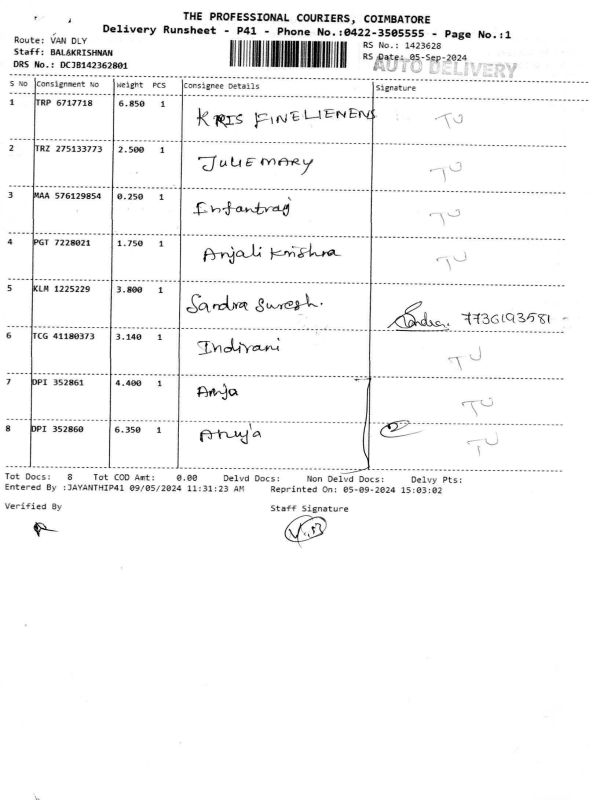 THE PROFESSIONAL COURIERS, COIMBATORE
Delivery Runsheet - P41 - Phone No.:0422-3505555 - Page No.:1
Route: VAN DLY
Staff: BALAKRISHNAN
DRS No.: DCJB142362801
RS No.: 1423628
RS Date: 05-Sep-2024
AUTO DELIVERY
S No Consignment No Weight PCS Consignee Details Signature
1 TRP 6717718 6.850 1 KRIS FINELIENENS TU
2 TRZ 275133773 2.500 1 JULIE MARY TU
3 MAA 576129854 0.250 1 Infantraj TU
4 PGT 7228021 1.750 1 Anjali Krishna TU
5 KLM 1225229 3.800 1 Sandra Suresh. Sandra. 7736193581
6 TCG 41180373 3.140 1 Indirani TU
7 DPI 352861 4.400 1 Anja TU
8 DPI 352860 6.350 1 Anuja TU
Tot Docs: 8 Tot COD Amt: 0.00 Delvd Docs: Non Delvd Docs: Delvy Pts:
Entered By :JAYANTHIP41 09/05/2024 11:31:23 AM Reprinted On: 05-09-2024 15:03:02
Verified By Staff Signature